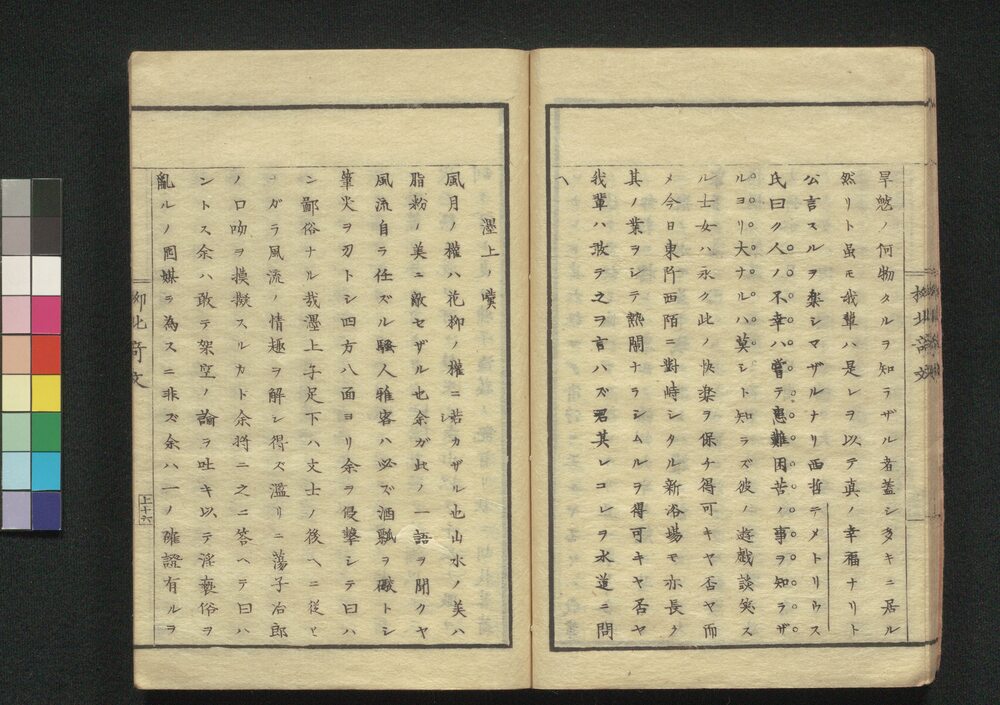 旱魃ノ何物タルヲ知ラザル者蓋シ多キニ居ル
然リト虽モ我輩ハ是レヲ以テ真ノ幸福ナリト
公言スルヲ楽シマザルナリ西哲デメトリウス
氏曰ク人ノ不幸ハ嘗テ患難困苦ノ事ヲ知ラザ
ルヨリ大ナルハ莫シト知ラズ彼ノ遊戯談笑ス
ル士女ハ永ク此ノ快楽ヲ保チ得可キヤ否ヤ而
メ今日東阡西陌ニ對峙シタル新浴場モ亦長ク
其ノ業ヲシテ熱鬧ナラシムルヲ得可キヤ否ヤ
我輩ハ敢テ之ヲ言ハズ君其レコレヲ水道ニ問
ヘ
墨上ノ嘆
風月ノ權ハ花柳ノ權ニ若カザル也山水ノ美ハ
脂粉ノ美ニ敵セザル也余ガ此ノ一語ヲ聞クヤ
風流自ラ任ズル騒人雅客ハ必ズ酒瓢ヲ礮トシ
筆尖ヲ刃トシ四方八面ヨリ余ヲ侵撃シテ曰ハ
ン鄙俗ナル哉濹上子足下ハ文士ノ後ヘニ從ヒ
ナガラ風流ノ情趣ヲ解シ得ズ濫リニ蕩子冶郎
ノ口吻ヲ摸擬スルカト余將ニ之ニ答ヘテ曰ハ
ントス余ハ敢テ架空ノ論ヲ吐キ以テ淫褻俗ヲ
亂ルノ囮媒ヲ為スニ非ズ余ハ一ノ確證有ルヲ
柳北奇文
上十六